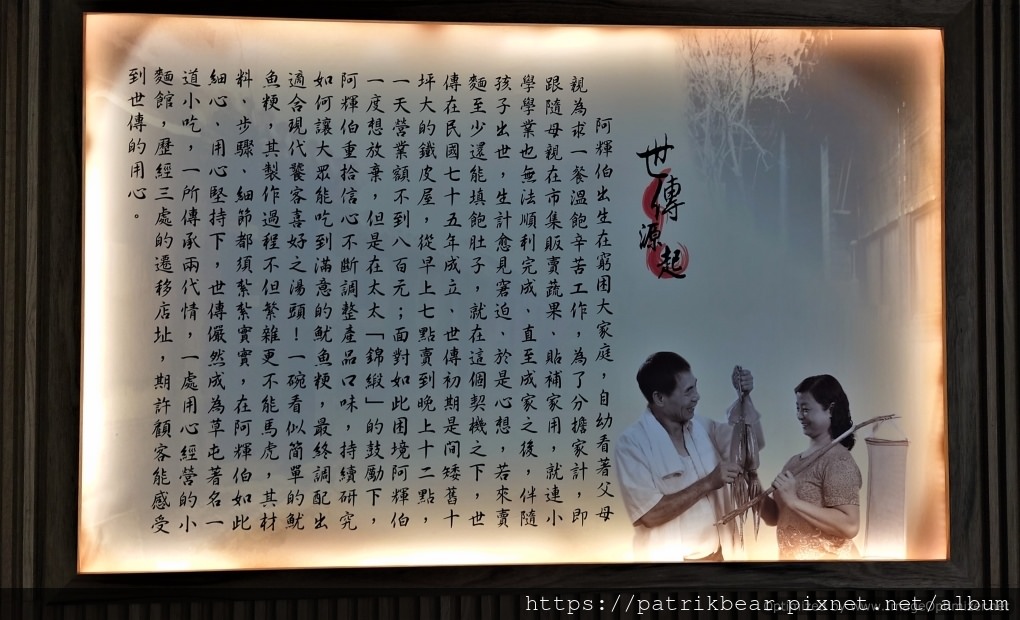 世傳源起
阿輝伯出生在窮困大家庭，自幼看著父母
親為求一餐溫飽辛苦工作，為了分擔家計，即
跟隨母親在市集販賣蔬果、貼補家用，就連小
學學業也無法順利完成、直至成家之後，伴隨
孩子出世，生計愈見窘迫、於是心想，若來賣
麵至少還能填飽肚子，就在這個契機之下，世
傳在民國七十五年成立、世傳初期是一間矮舊十
坪大的鐵皮屋，從早上七點賣到晚上十二點，
一天營業額不到八百元；面對如此困境阿輝伯
一度想放棄，但是在太太「錦緞」的鼓勵下，
阿輝伯重拾信心不斷調整產品口味，持續研究
如何讓大眾能吃到滿意的魷魚粳，最終調配出
適合現代饕客喜好之湯頭！一碗看似簡單的魷
魚粳，其製作過程不但繁雜更不能馬虎，其材
料、步驟、細節都須紮紮實實，在阿輝伯如此
細心、用心堅持下，世傳儼然成為草屯著名一
道小吃，一所傳承兩代情，一處用心經營的小
麵館，歷經三處的遷移店址，期許顧客能感受
到世傳的用心。
https://patrikbear.pixnet.net/album